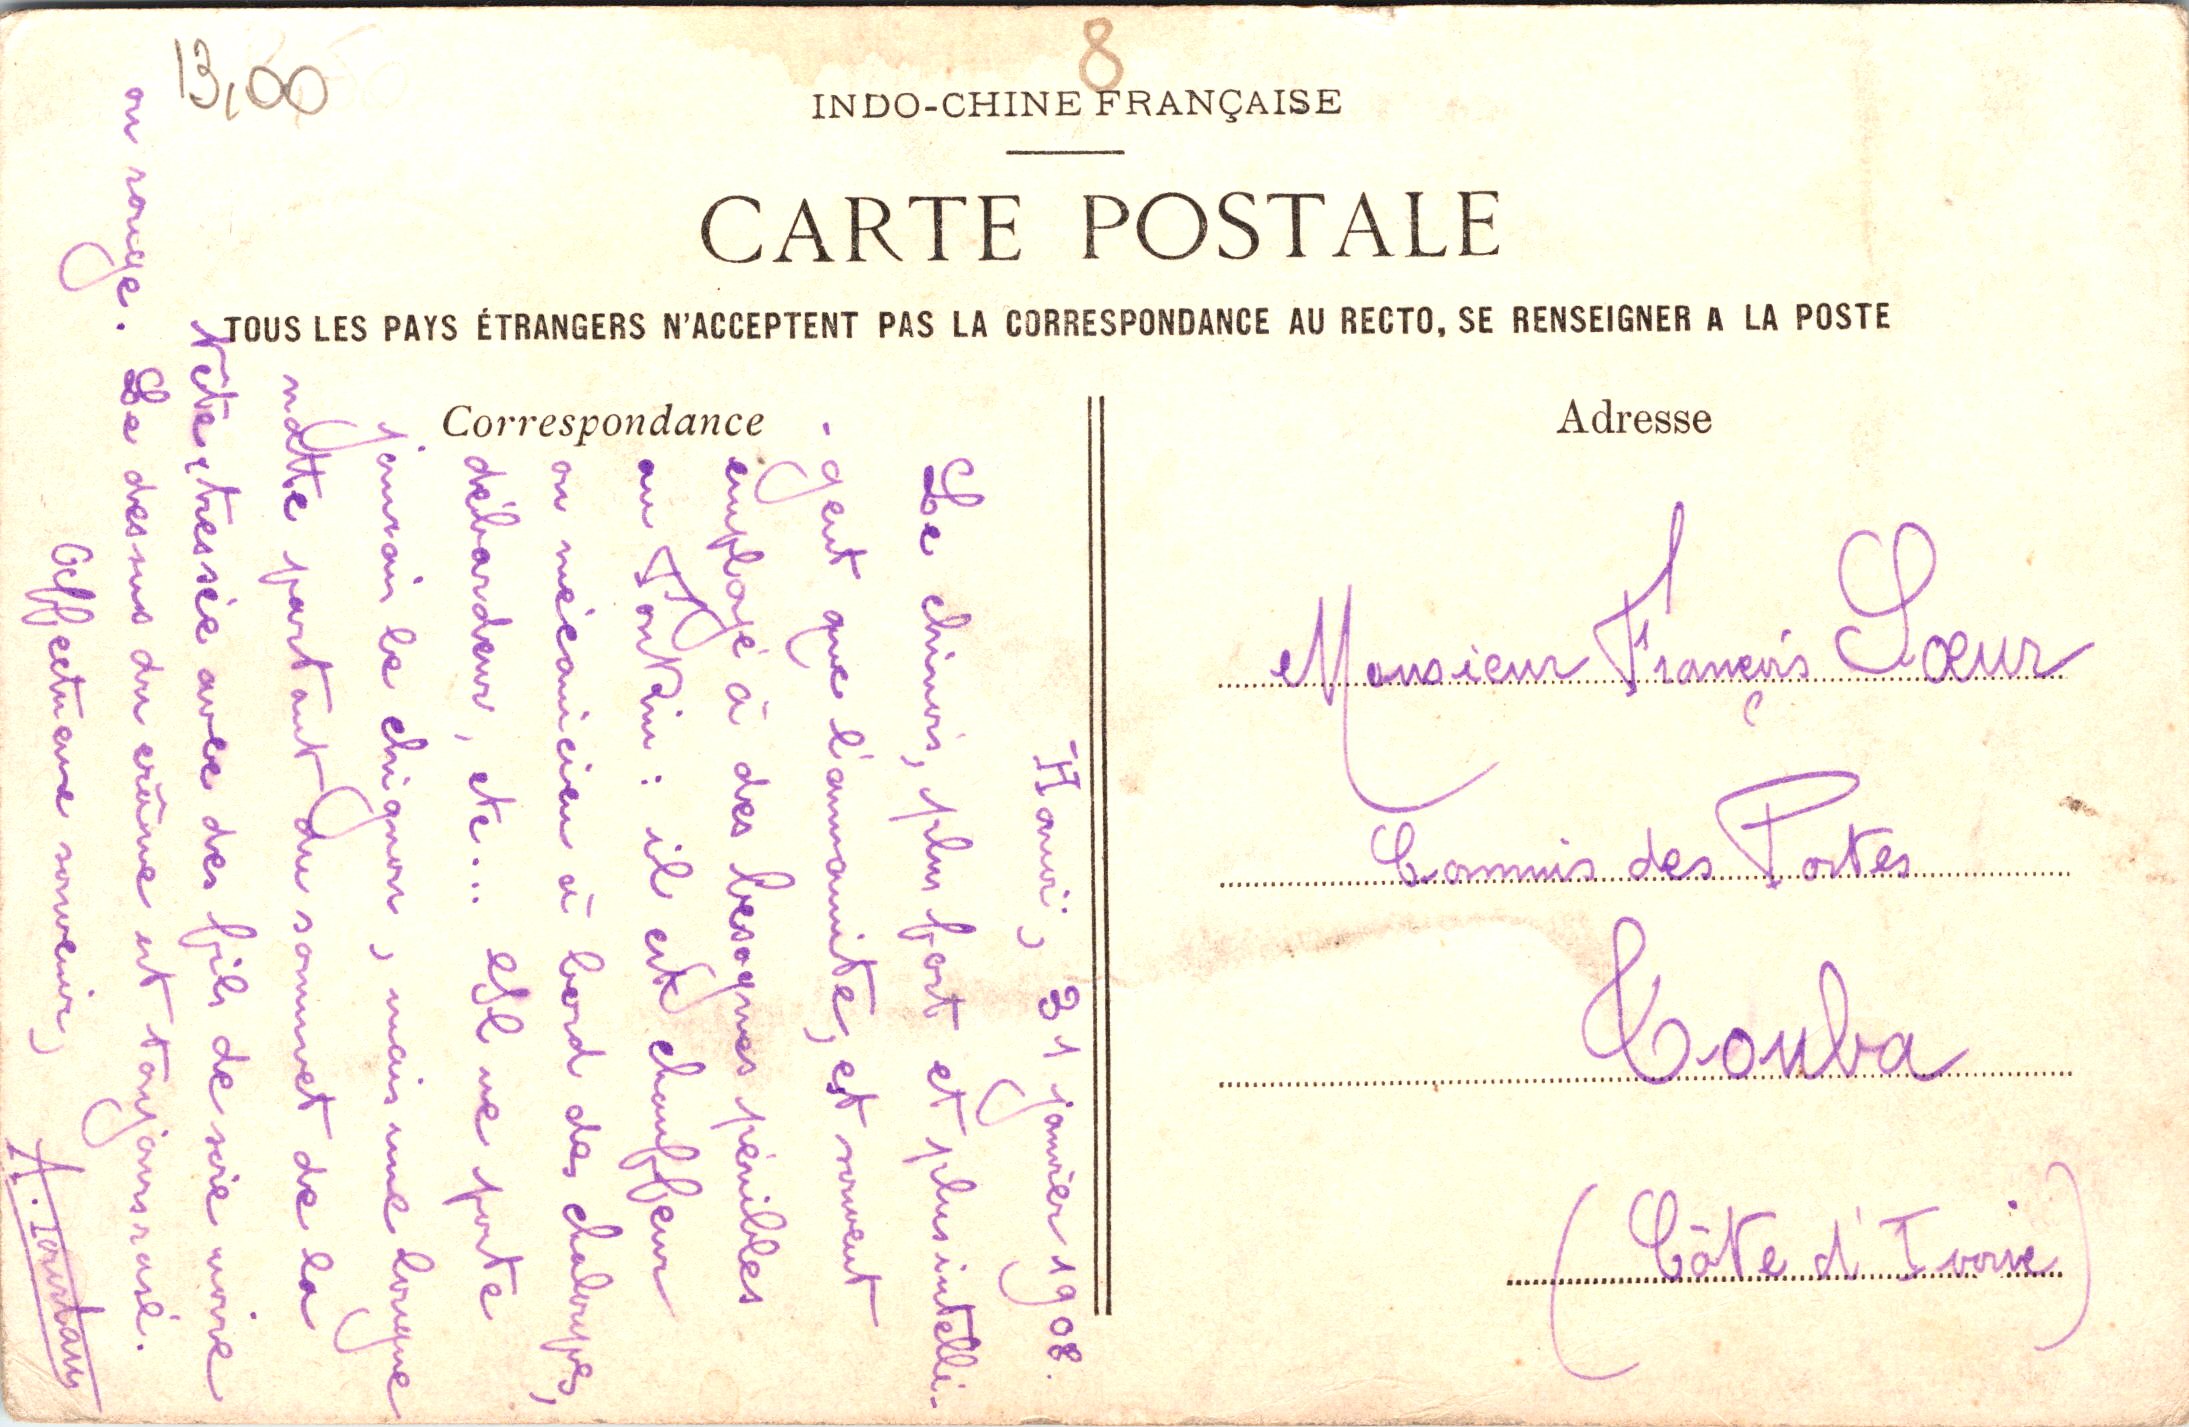 13,00
8
INDO-CHINE FRANÇAISE
CARTE POSTALE
TOUS LES PAYS ÉTRANGERS N'ACCEPTENT PAS LA CORRESPONDANCE AU RECTO, SE RENSEIGNER A LA POSTE
Correspondance
Hanoï, 31 janvier 1908.
Le chinois, plus fort et plus intelli-
-gent que l'annamite, est souvent
employé à des besognes pénibles
au Tonkin : il est chauffeur
ou mécanicien à bord des chaloupes,
débardeur, etc... Il ne porte
jamais le chignon, mais une longue
natte partant du sommet de la
tête, tressée avec des fils de soie noire
ou rouge. Le dessus du crâne est toujours rasé.
Affectueux souvenir,
A.
Adresse
Monsieur François Sœur
Commis des Postes
Touba
(Côte d'Ivoire)